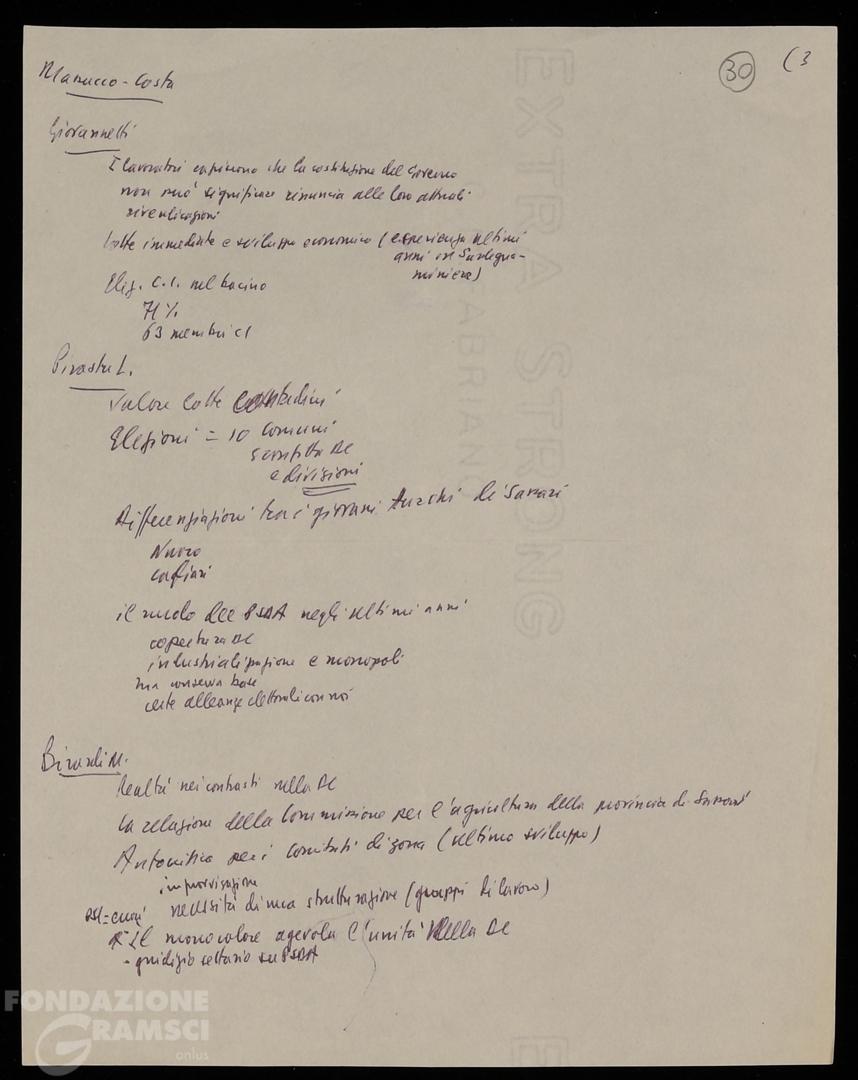 30 (3
Manucco - Costa
Giovannetti
I lavoratori capiscono che la costituzione del Governo
non può significare rinuncia alle loro attuali
rivendicazioni
Lotte immediate e sviluppo economico (esperienza ultimi
anni in Sardegna -
miniere)
Elez. C.I. nel bacino
71%
63 membri CI
Pirastu L.
Valore lotte contadini
Elezioni = 10 comuni
sconfitta DC
e divisioni
Differenziazioni tra i giovani turchi di Sassari
Nuoro
Cagliari
il ruolo del PSdA negli ultimi anni
copertura DC
industrializzazione e monopoli
ma conserva base
certe alleanze elettorali con noi
Birardi M.
Realtà nei contrasti nella DC
La relazione della Commissione per l'agricoltura della provincia di Sassari
Autocritica per i comitati di zona (ultimo sviluppo)
improvvisazione
necessità di una strutturazione (gruppi di lavoro)
Il monocolore agevola l'unità della DC
- giudizio settario su PSdA
EXTRA STRONG
FABRIANO
E
FONDAZIONE
GRAMSCI
onlus